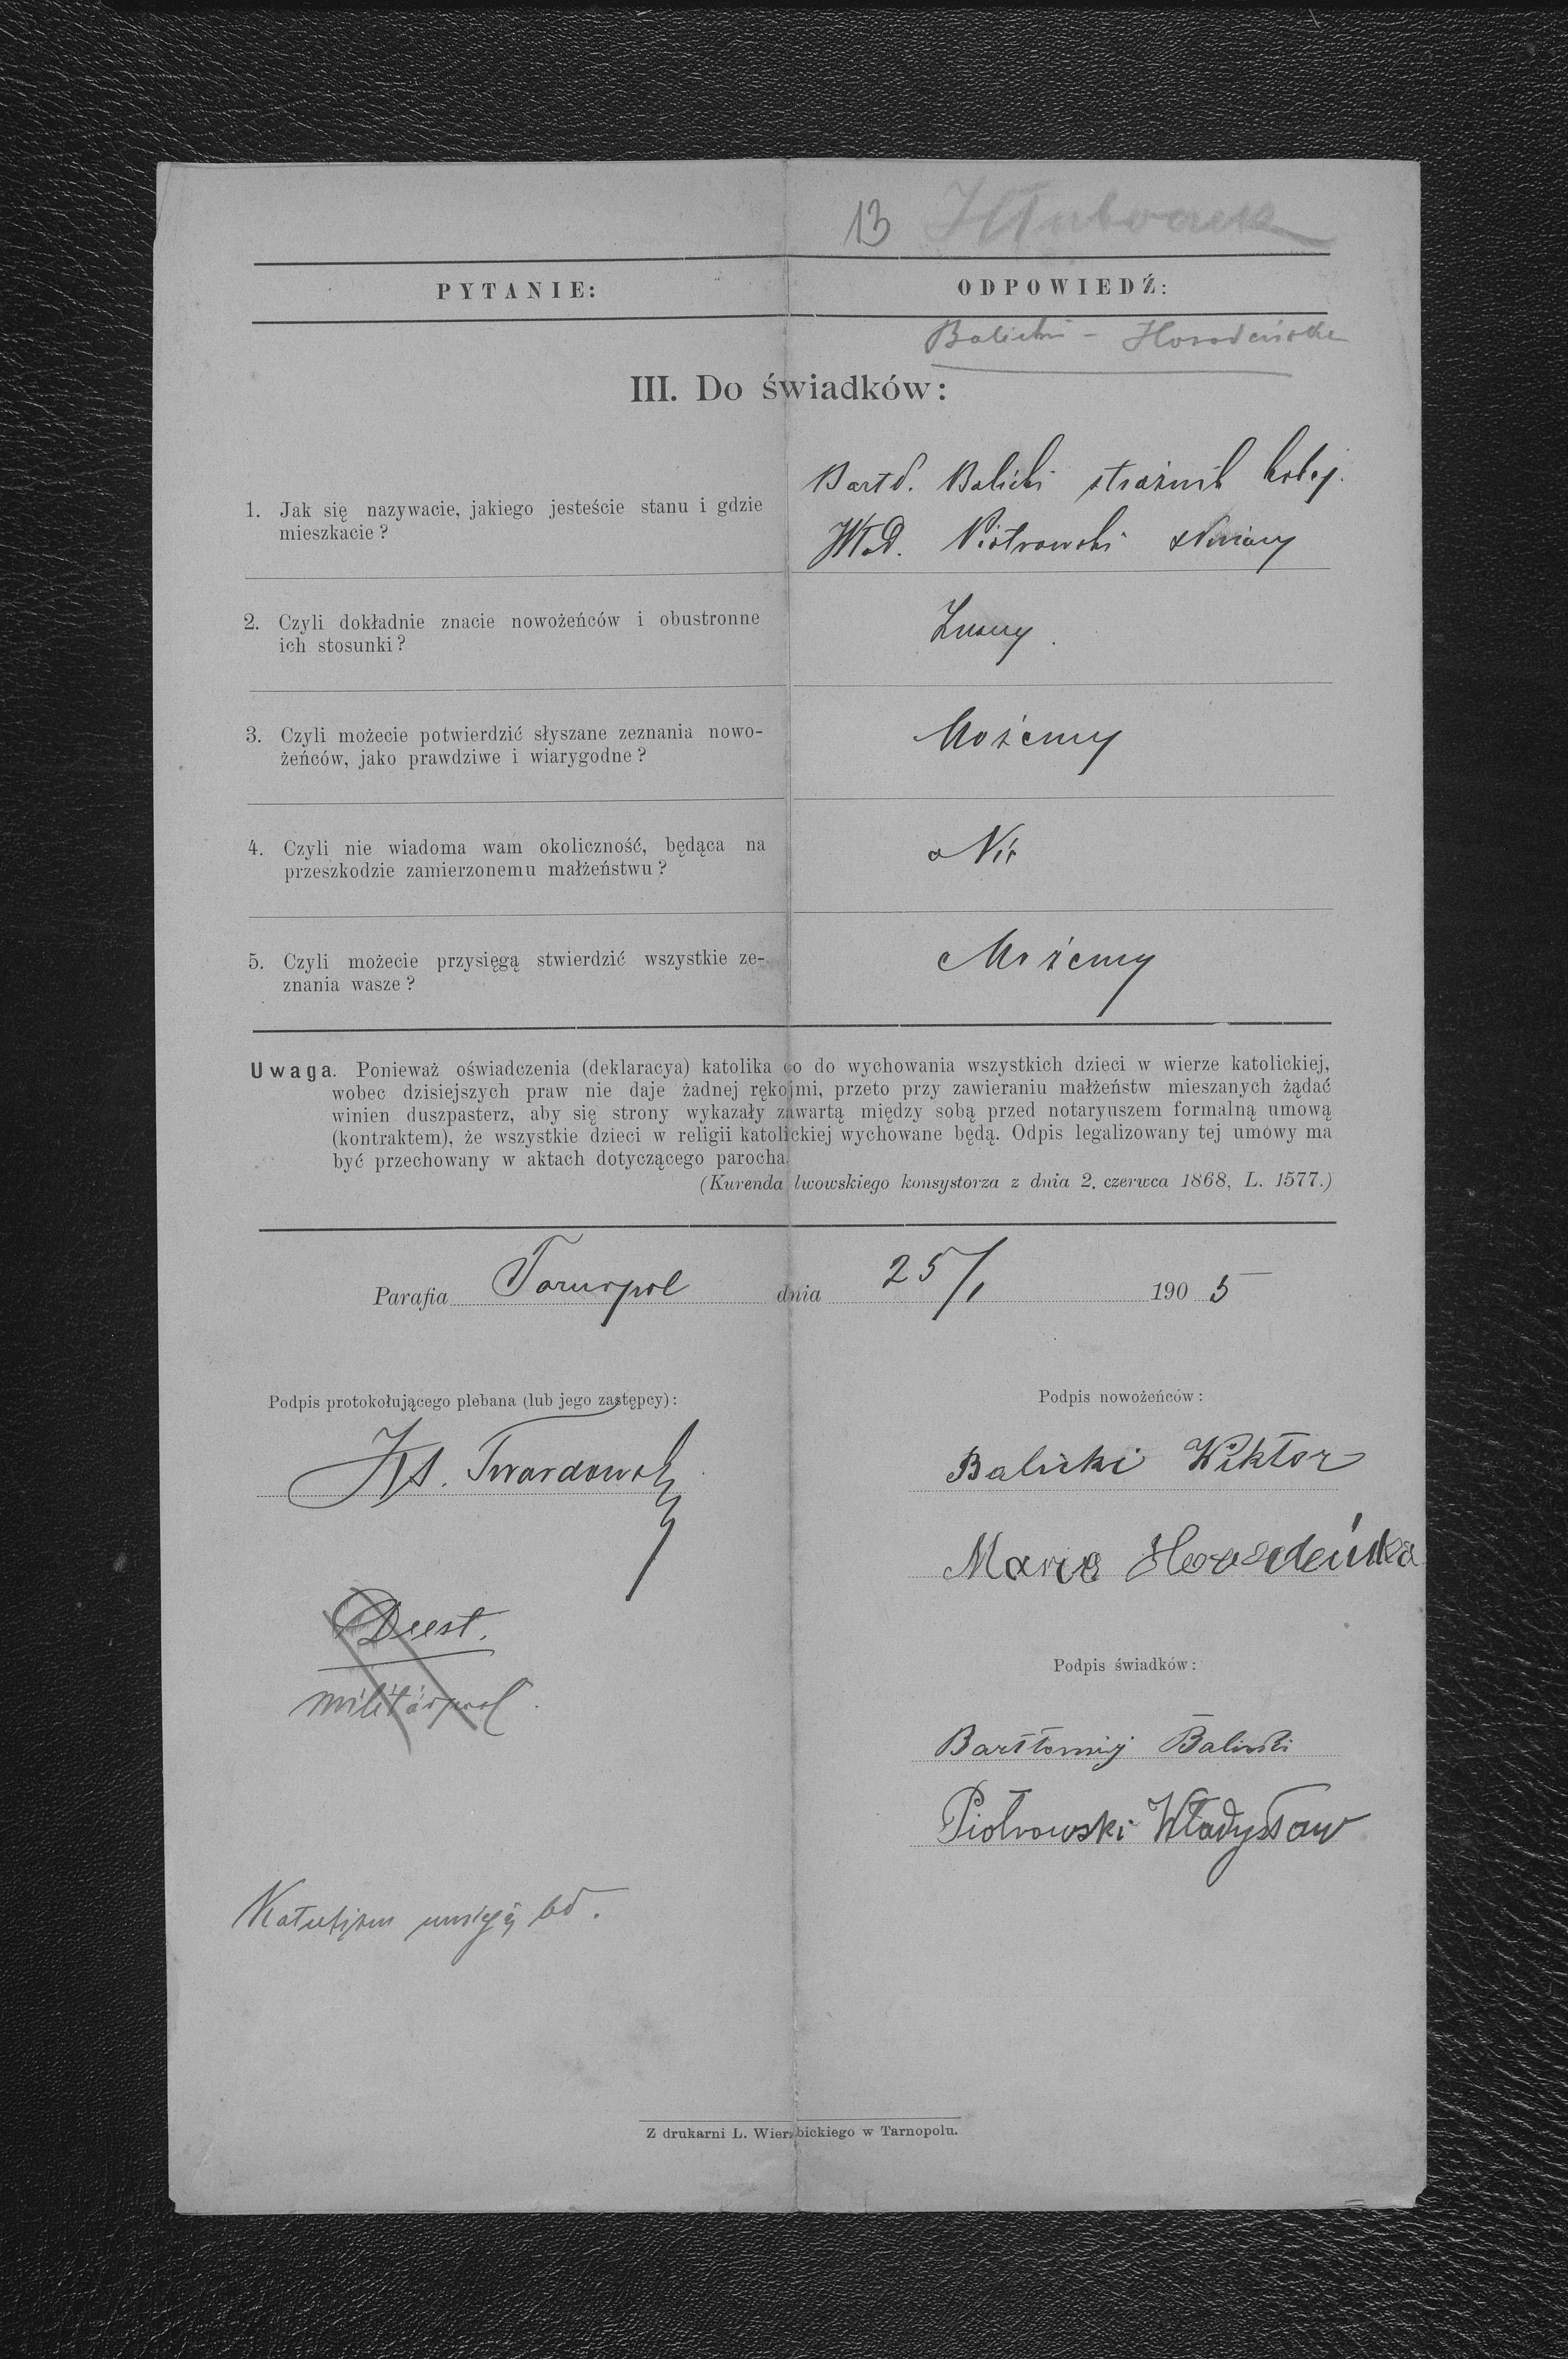 13 Hłuboczek
PYTANIE: ODPOWIEDŹ:
Balicki – Horodeńska
III. Do świadków:
1. Jak się nazywacie, jakiego jesteście stanu i gdzie
mieszkacie?
Bartł. Balicki strażnik kolej.
Wład. Piotrowski
2. Czyli dokładnie znacie nowożeńców i obustronne
ich stosunki?
Znamy.
3. Czyli możecie potwierdzić słyszane zeznania nowo-
żeńców, jako prawdziwe i wiarygodne?
Możemy
4. Czyli nie wiadoma wam okoliczność, będąca na
przeszkodzie zamierzonemu małżeństwu?
Nie
5. Czyli możecie przysięgą stwierdzić wszystkie ze-
znania wasze?
Możemy
Uwaga. Ponieważ oświadczenia (deklaracya) katolika co do wychowania wszystkich dzieci w wierze katolickiej,
wobec dzisiejszych praw nie daje żadnej rękojmi, przeto przy zawieraniu małżeństw mieszanych żądać
winien duszpasterz, aby się strony wykazały zawartą między sobą przed notaryuszem formalną umową
(kontraktem), że wszystkie dzieci w religii katolickiej wychowane będą. Odpis legalizowany tej umowy ma
być przechowany w aktach dotyczącego parocha.
(Kurenda lwowskiego konsystorza z dnia 2. czerwca 1868, L. 1577.)
Parafia Tarnopol dnia 25/1 1905
Podpis protokołującego plebana (lub jego zastępcy):
Ks. Twardowski
Podpis nowożeńców:
Balicki Wiktor
Maria Horodeńska
Deest.
Podpis świadków:
Bartłomiej Balicki
Piotrowski Władysław
Katechizm umieją
Z drukarni L. Wierzbickiego w Tarnopolu.